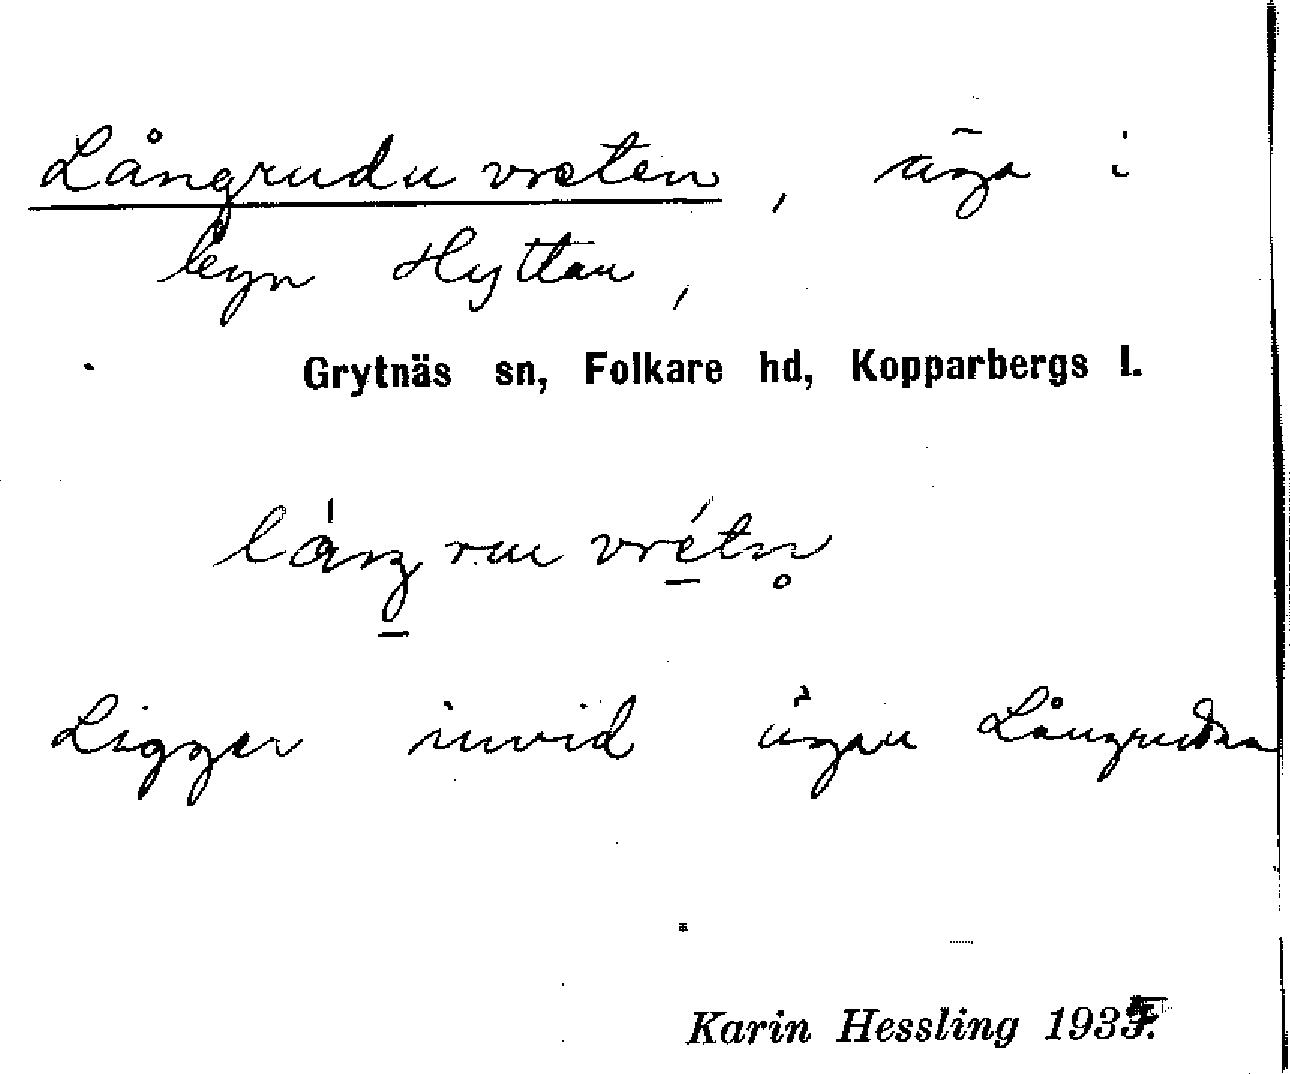 Långrudu vreten, äga i
byn Hyttan,
Grytnäs sn, Folkare hd, Kopparbergs l.
Ligger invid ägan Långrudan
Karin Hessling 193